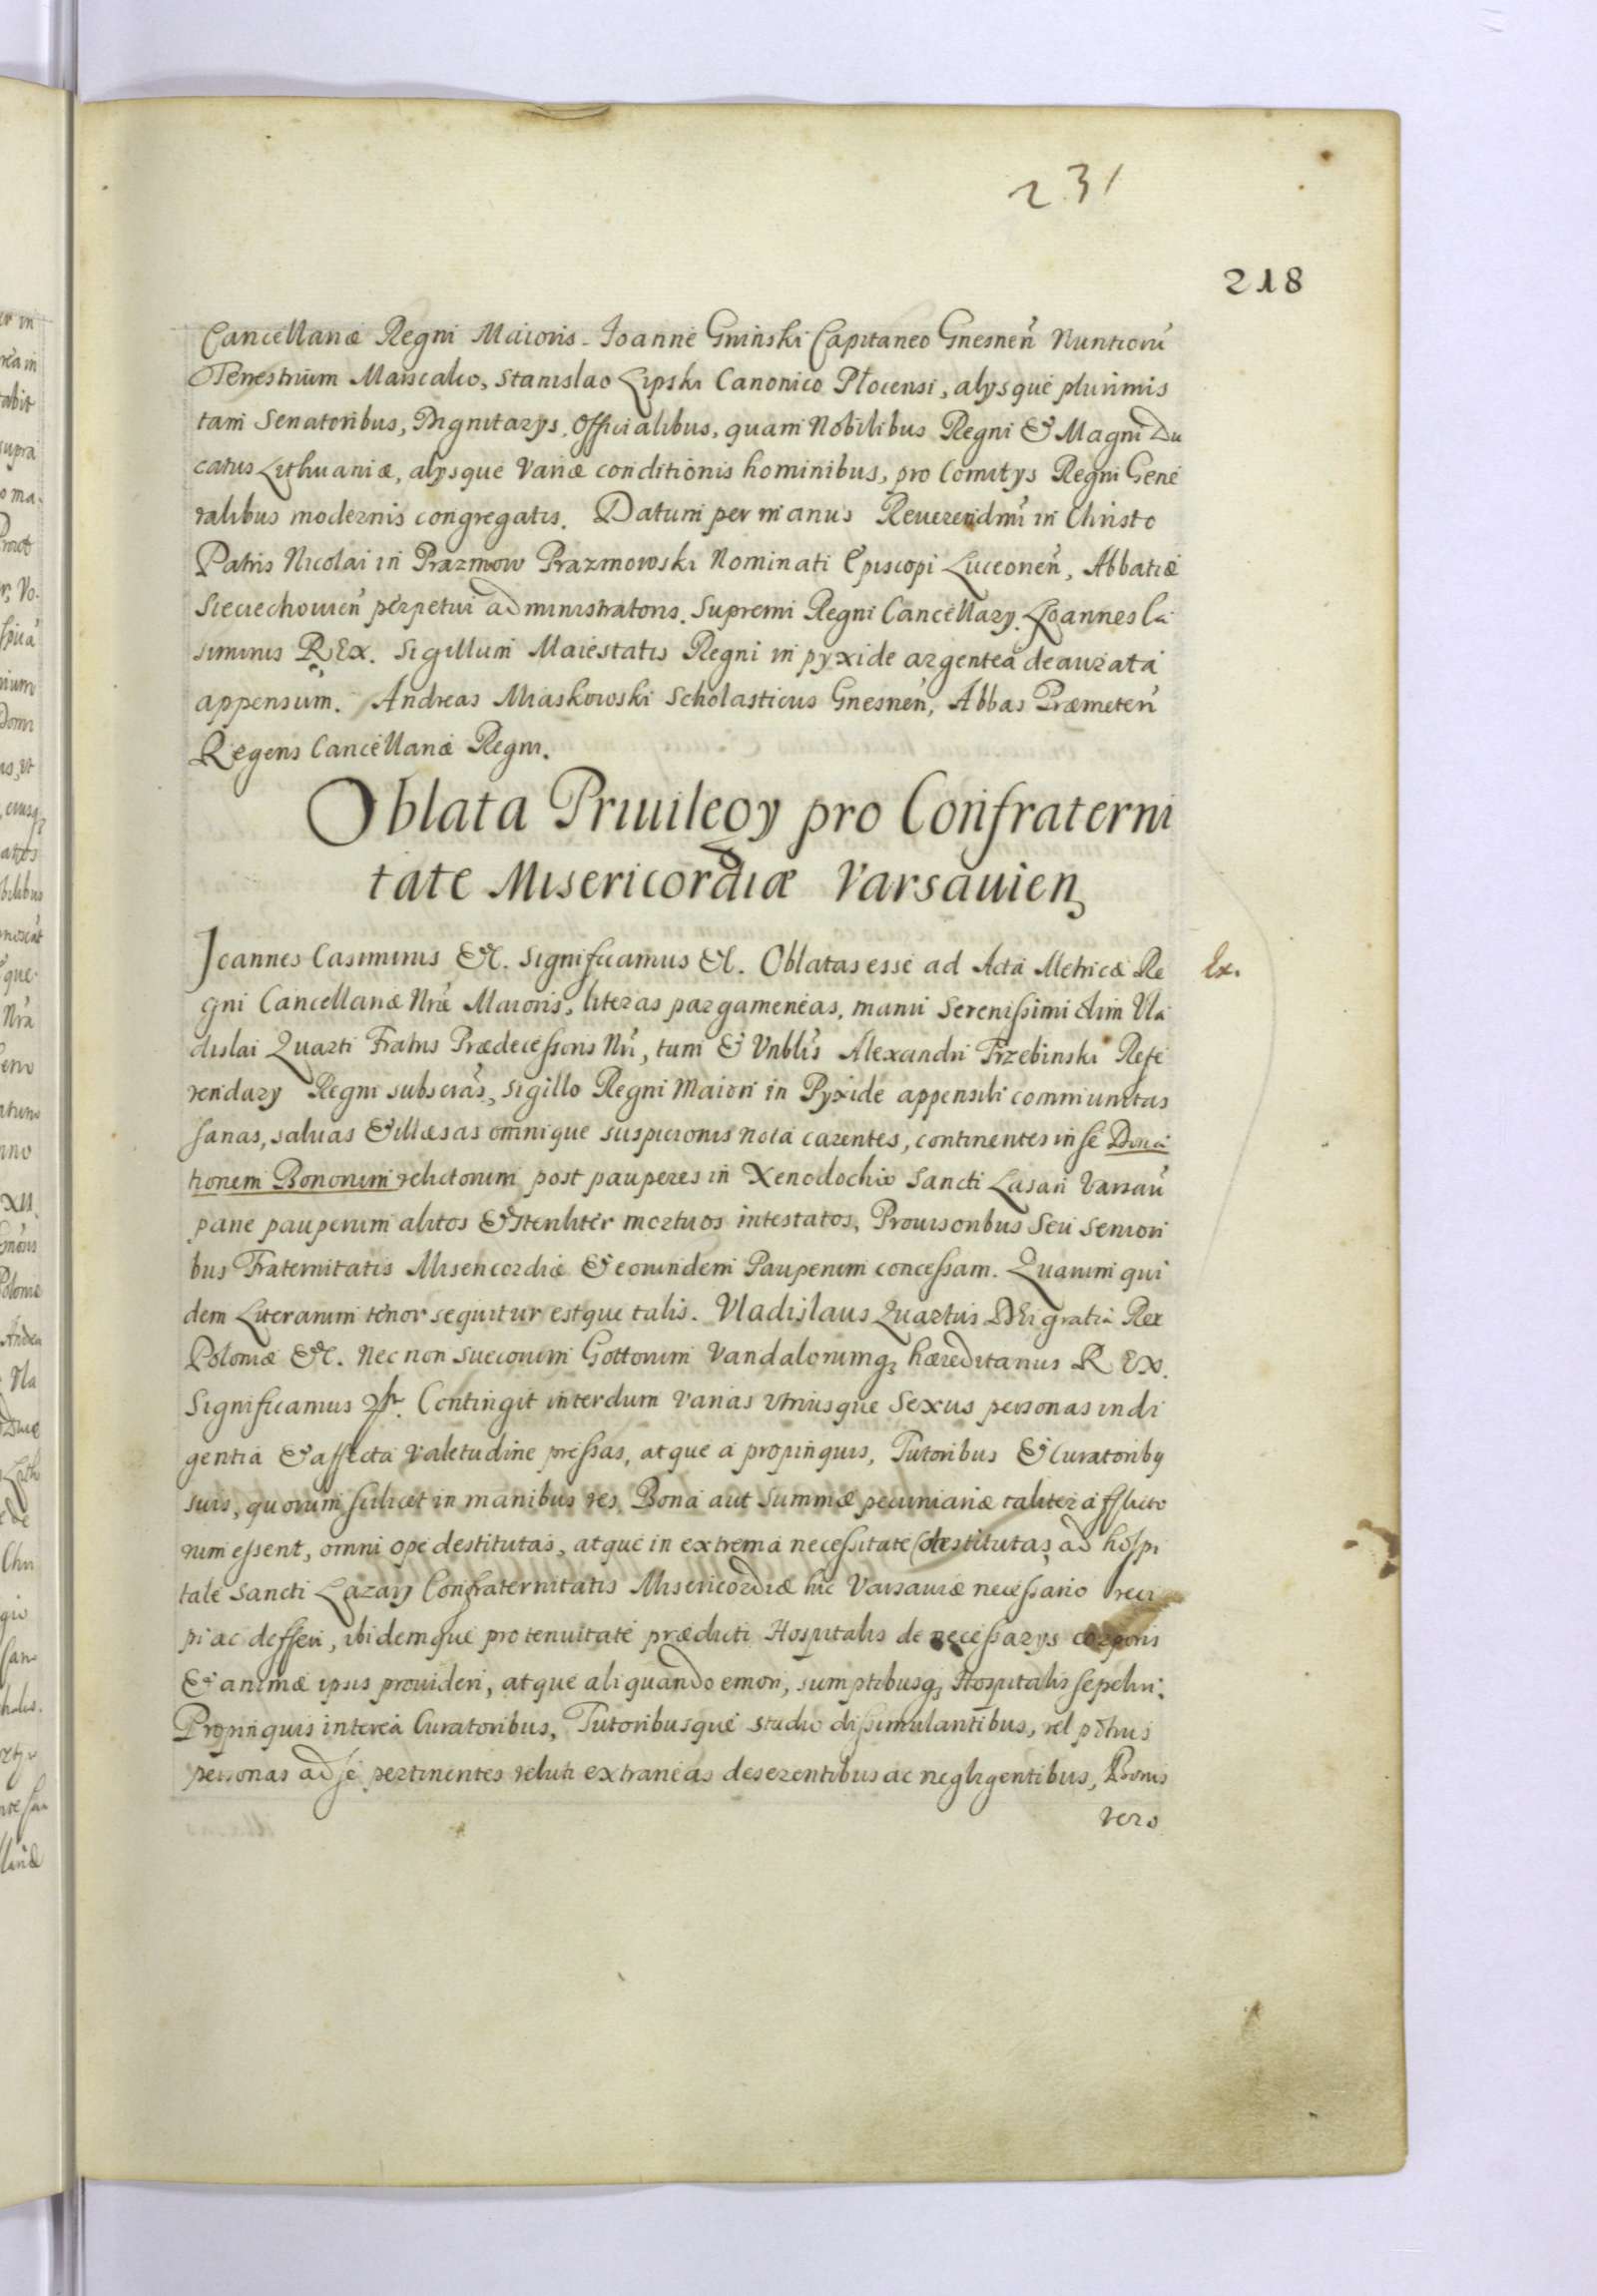 231
218
Cancellariæ Regni Maioris. Ioanne Gninski Capitaneo Gnesneñ Nuntiorũ
Terrestrium Marscalco, Stanislao Lipski Canonico Plocensi, alysque plurimis
tam Senatoribus, Dignitarys, Officialibus, quam Nobilibus Regni & Magni Du
catus Lithuaniæ, alysque variæ conditionis hominibus, pro Comitys Regni Gene
ralibus modernis congregatis. Datum per manus Reuerendmi in Christo
Patris Nicolai in Prazmow Prazmowski Nominati Episcopi Luceoneñ, Abbatiæ
Sieciechouieñ perpetui administratoris. Supremi Regni Cancellary. Joannes Ca
simirus REX. Sigillum Maiestatis Regni in pyxide argentea deaurata
appensum. Andreas Miaskowski Scholasticus Gnesneñ, Abbas Præmeteñ
Regens Cancellariæ Regni.
Oblata Priuilegy pro Confraterni
tate Misericordiæ Varsauien
Joannes Casimirus &c. Significamus &c. Oblatas esse ad Acta Metricæ Re
Ex.
gni Cancellariæ Nræ Maioris, literas pargameneas, manu Serenissimi olim Vla
dislai Quarti Fratris Prædecessoris Nri, tum & Vrablis Alexandri Trzebinski Refe
rendary Regni subscrãs, sigillo Regni Maiori in Pyxide appensili communitas
sanas, saluas & illæsas omnique suspicionis nota carentes, continentes in se Dona
tionem Bonorum relictorum post pauperes in Xenodochio Sancti Lasari Varsaũ
pane pauperum alitos & steriliter mortuos intestatos, Prouisoribus Seu Seniori
bus Fraternitatis Misericordiæ & eorundem Pauperum concessam. Quarum qui
dem Literarum tenor sequitur estque talis. Vladislaus Quartus DEi gratia Rex
Poloniæ &c. Nec non Suecorum Gottorum Vandalorumq hæreditarius REX.
Significamus Contingit interdum varias vtriusque Sexus personas indi
gentia & affecta valetudine pressas, atque a propinquis, Tutoribus & Curatoriby
suis, quorum scilicet in manibus res, Bona aut Summæ pecuniariæ taliter afflicto
rum essent, omni ope destitutas, atque in extrema necessitate destitutas ad hospi
tale Sancti Lazary Confraternitatis Misericordiæ hic Varsauiæ necessario reci
pi ac defferi, ibidemque pro tenuitate prædicti Hospitalis de necessarys corporis
& animæ ipsis prouideri, atque aliquando emori, sumptibusq Hospitalis sepeliri.
Propinquis interea Curatoribus, Tutoribusque studio dissimulantibus, vel põtius
personas ad se pertinentes veluti extraneas deserentibus ac negligentibus, Bonis
vero